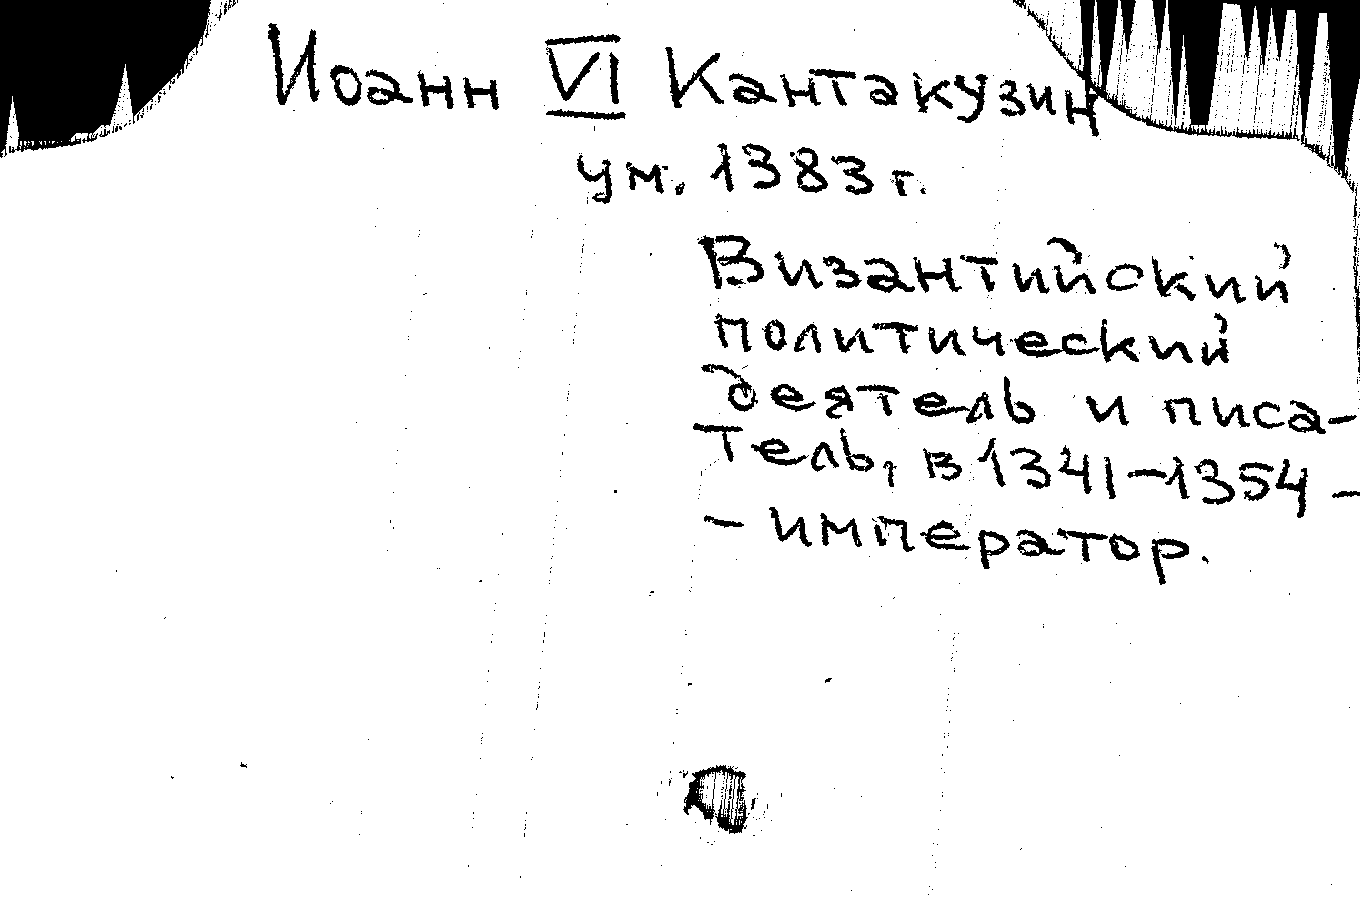 Иоанн VI Кантакузин
ум. 1383 г.
Византийский
политический
деятель и писа-
тель, в 1341-1354 -
- император.